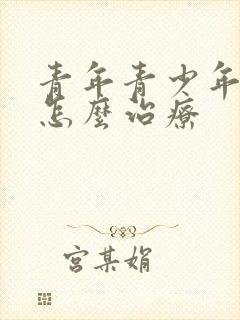 青年青少年
怎麼治療
宮某娟